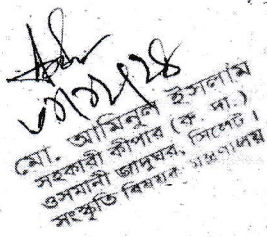 মো. আমিনুল ইসলাম
সহকারী কীপার (ক. দা.)
ওসমানী জাদুঘর, সিলেট।
সংস্কৃতি বিষয়ক মন্ত্রণালয়